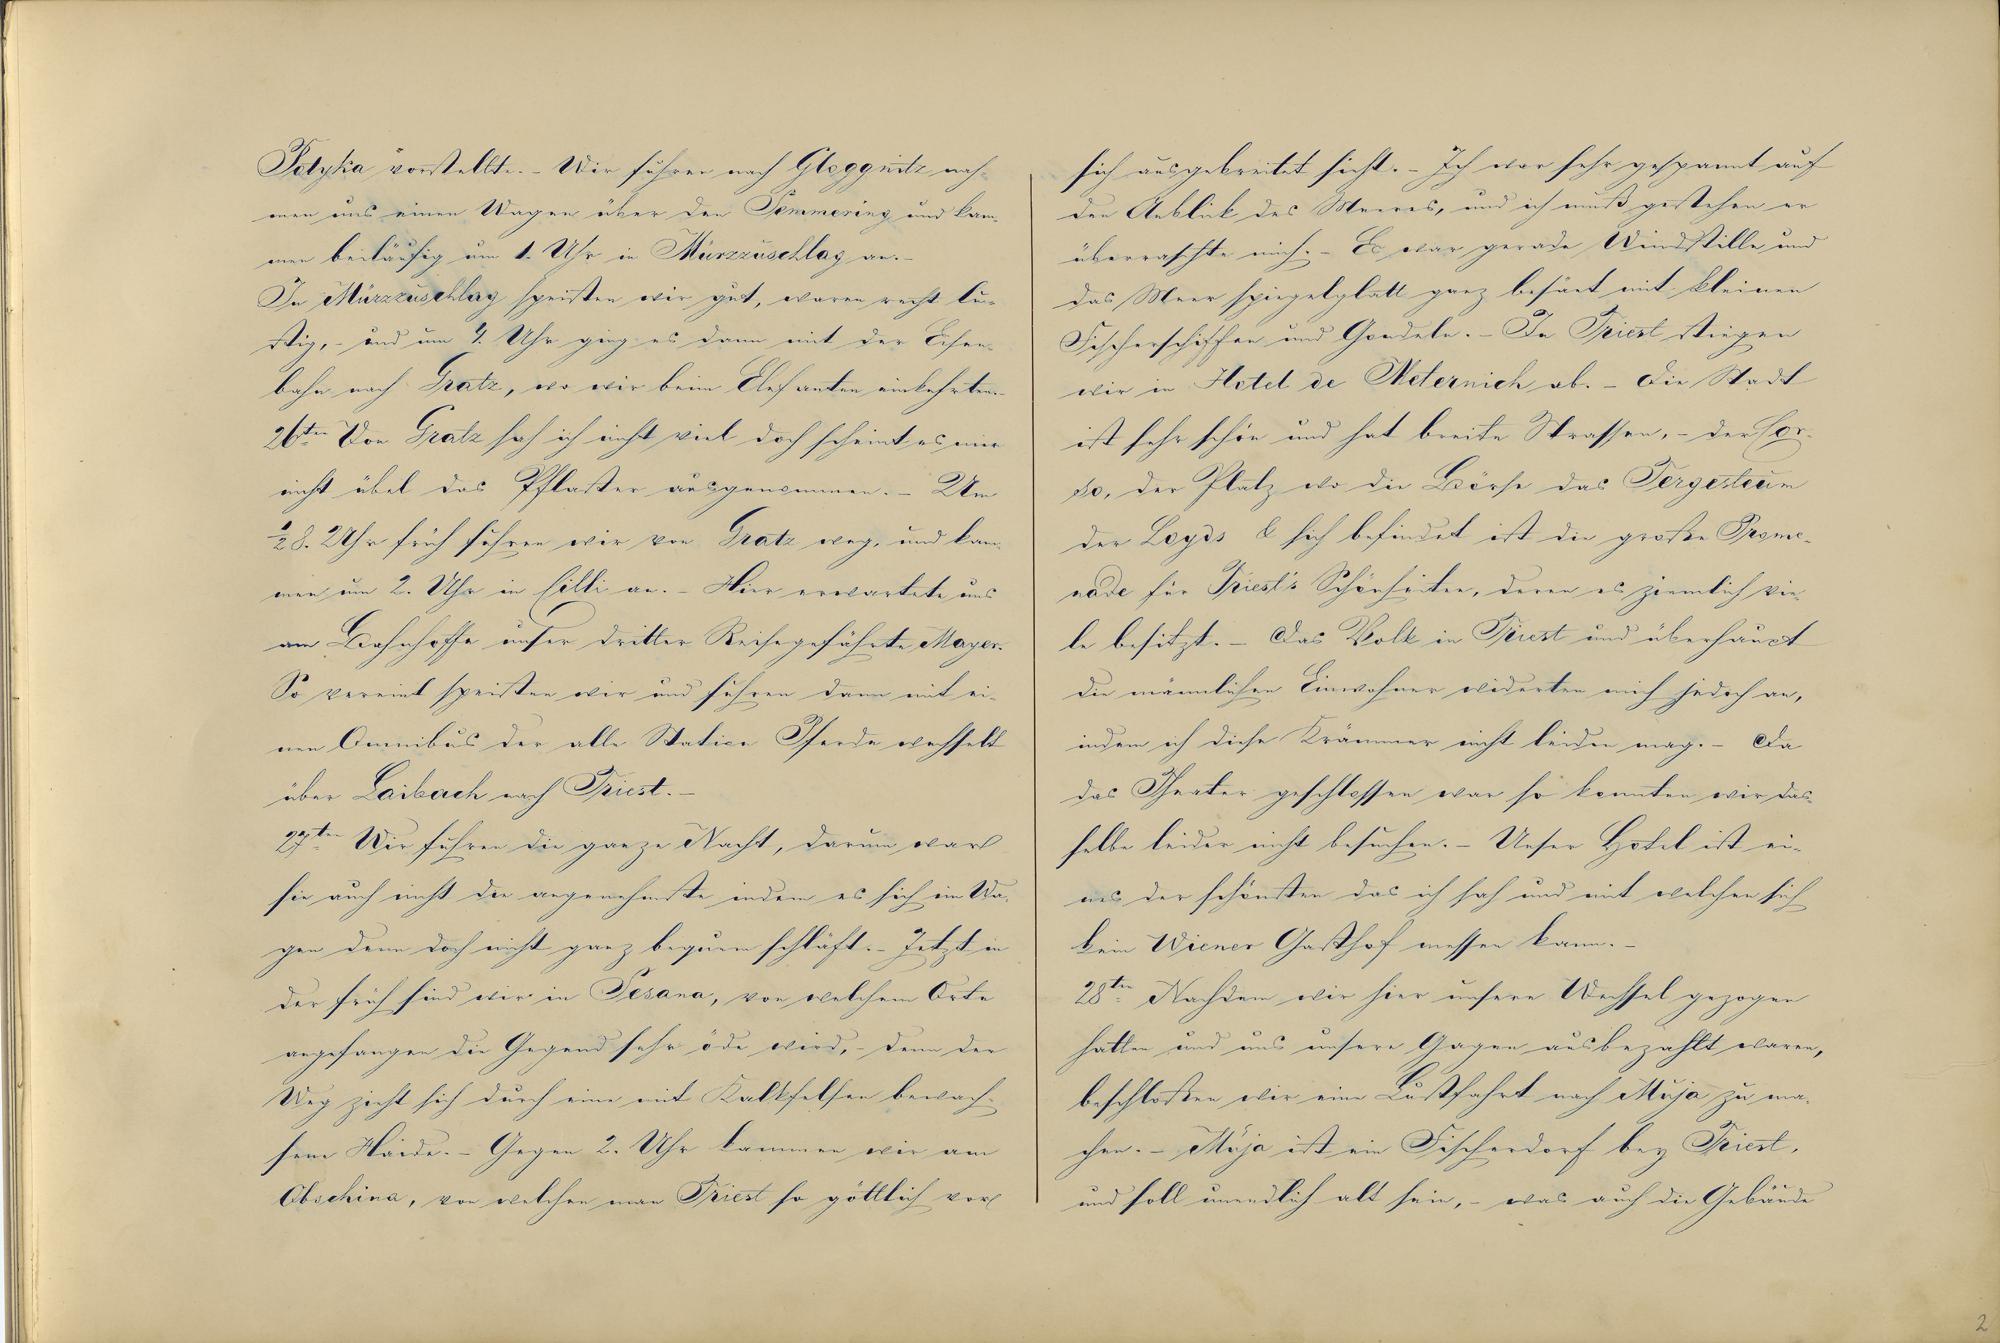 Potyka" vorstellte. – Wir fuhren nach Gloggnitz nah-
men uns einen Wagen über den Semmering und kam-
men beiläufig um 1. Uhr in Mürzzuschlag an. –
In Mürzzuschlag speisten wir gut, waren recht lu-
stig, – und um Uhr ging es dann mit der Eisen-
bahn nach Gratz, wo wir beim Elefanten einkehrten. –
26ten Von Gratz sah ich nicht viel doch scheint es mir
nicht übel das Pflaster ausgenommen. – Um
½ 8. Uhr früh fuhren wir von Gratz weg, und kam-
men um 2. Uhr in Cilli an. – Hier erwartete uns
am Bahnhoffe unser dritter Reisegefährte Mayer.
So vereint speisten wir und fuhren dann mit ei-
nen Omnibus der alle Station Pferde wechselt
über Laibach nach Triest. –
27ten Wir fuhren die ganze Nacht, darum war
sie auch nicht die angenehmste indem es sich im Wa-
gen denn doch nicht ganz bequem schläft. – Jetzt in
der früh sind wir in Sesana, von welchem Orte
angefangen die Gegend sehr öde wird, – denn der
Weg zieht sich durch eine mit Kalkfelsen bewach-
sene Haide. – Gegen 2. Uhr kammen wir am
Obschina, von welchen man Triest so göttlich vor
sich ausgebreitet sieht. – Ich war sehr gespannt auf
den Anblick des Meeres, und ich muß gestehen er
überraschte mich. – Es war gerade Windstille und
das Meer spiegelglatt ganz besäet mit kleinen
Fischerschiffen und Gondeln. – In Triest stiegen
wir in Hotel de Meternich ab. – Die Stadt
ist sehr schön und hat breite Strassen, – der Cor-
so, der Platz wo die Börse das Tergesteum
der Loyds & sich befindet ist die große Prome-
nade für Triest's Schönheiten, deren es ziemlich vie-
le besitzt. – Das Volk in Triest und überhaupt
die männlichen Einwohner widerten mich jedoch an,
indem ich diese Krämmer nicht leiden mag. – Da
das Theater geschlossen war so konnten wir das-
selbe leider nicht besuchen. – Unser Hotel ist ei-
nes der schönsten das ich sah und mit welchen sich
kein Wiener Gasthof messen kann. –
28ten Nachdem wir hier unsere Wechsel gezogen
hatten und uns unsere Gagen ausbezahlt waren,
beschloßen wir eine Lustfahrt nach Muja zu ma-
chen. – Muja ist ein Fischerdorf bey Triest,
und soll unendlich alt sein, – was auch die Gebäude
2